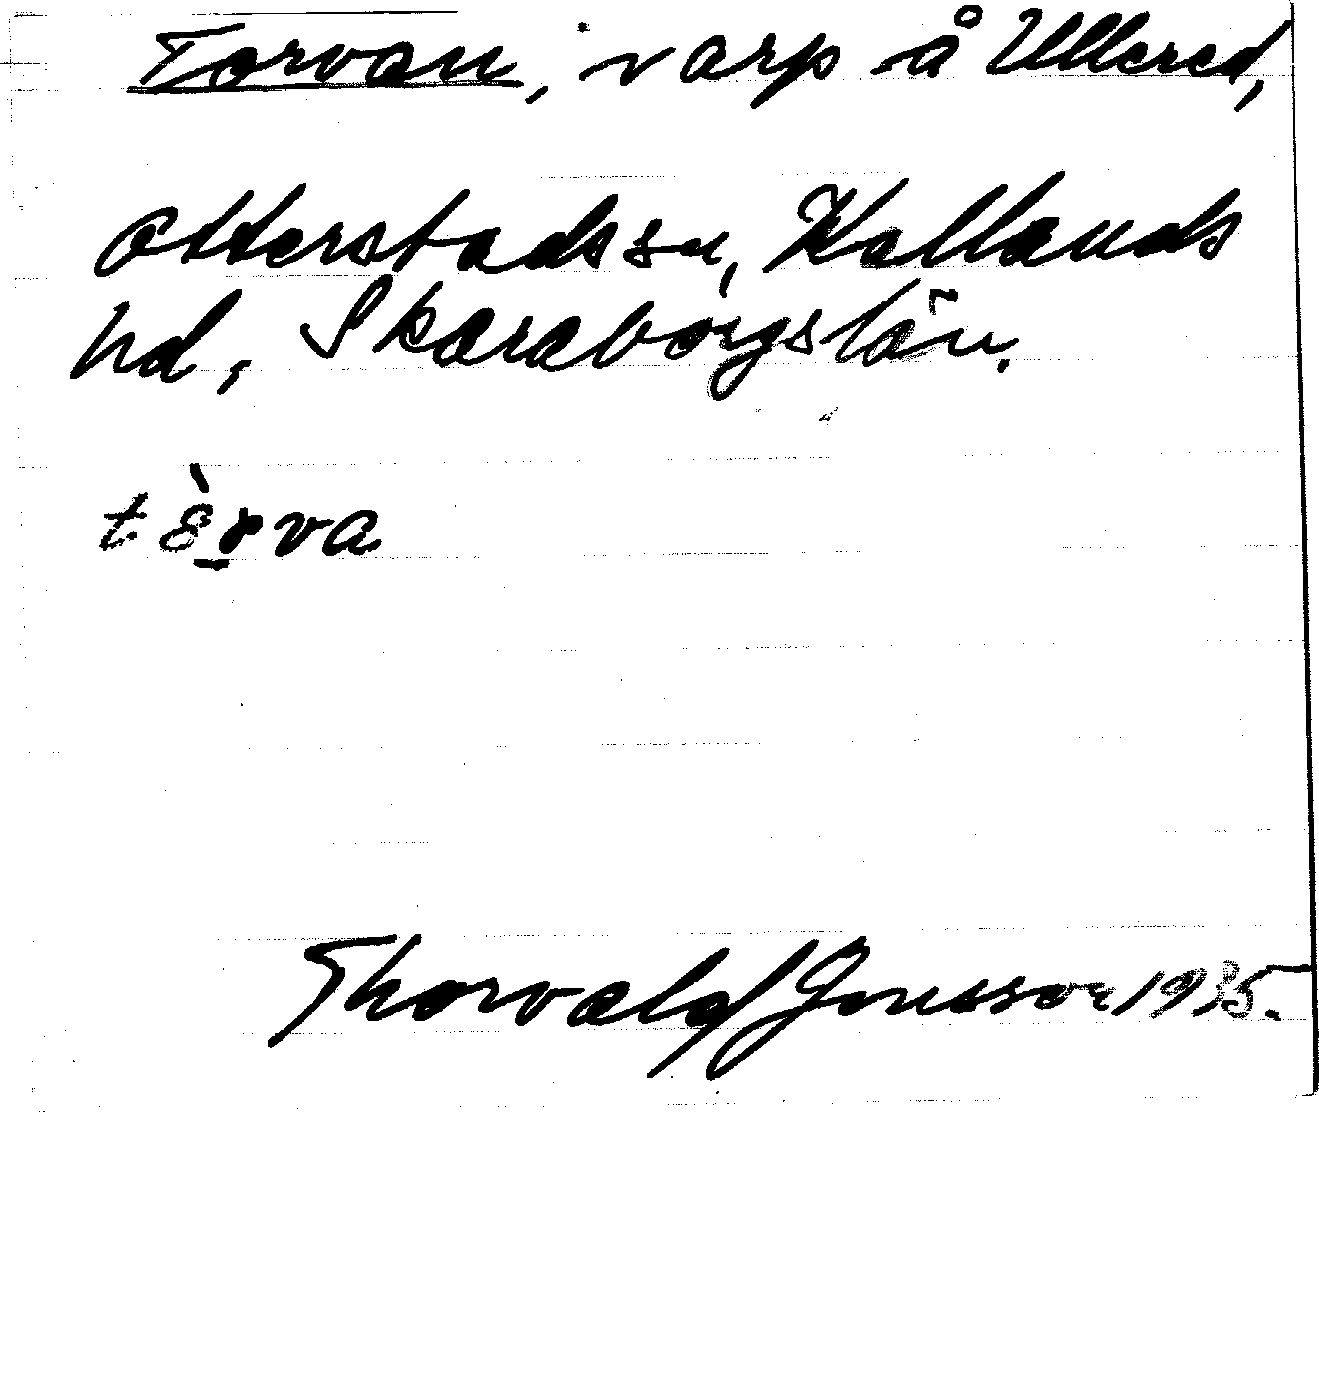 Torvan, varp å Ullered,
Otterstads sn, Kållands
hd, Skaraborgs län.
tèrva
Thorvald Jonsson 1935.